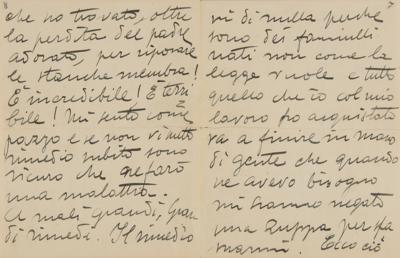 che ho trovato, oltre
la perdita del padre
adorato, per riposare
le stanche membra!
É incredibile! É terri
bile! Mi sento come
pazzo e se non vi metto
rimedio subito sono
sicuro che
una malattia.
A mali grandi, gran
di rimedi. Il rimedio
vi di nulla perche
sono dei fanciulli
nati non come la
legge vuole e tutto
quello che io col mio
lavoro ho acquistato
va a finire in mano
di gente che quando
ne avevo bisogno
mi hanno negato
una zuppa per
Ecco ciò